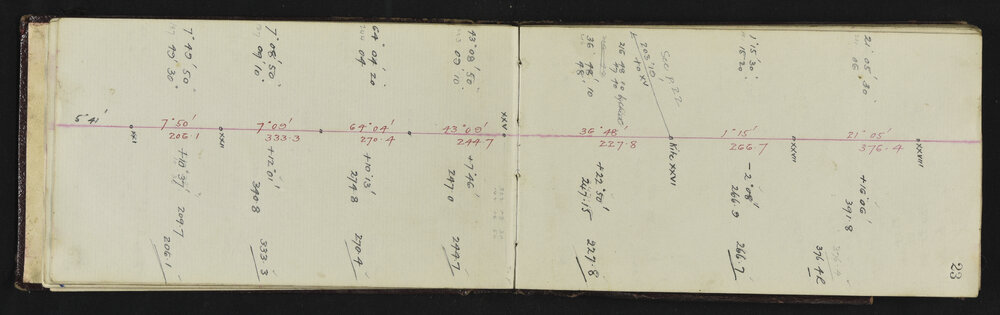 5° 41'
XXI
7° 49' 50"
49' 30"
7° 50'
206.1
+10° 37' 209.7
206.1
XXII
7° 08' 50"
09' 10"
7° 09'
333.3
+12° 01'
340.8
333.3
64° 04' 20"
04'
64° 04'
270.4
+10° 13'
274.8
270.4
43° 08' 50"
09' 10"
43° 09'
244.7
+7° 46'
247.0
244.7
XXV
36° 48' 10"
48'
36° 48'
227.8
+22° 50'
247.15
227.8
See p 22
203° 10'
to XV
Kite XXVI
1° 15' 30"
15' 20
1° 15'
266.7
-2° 08'
266.9
266.7
XXVII
21° 05' 30"
05
21° 05'
376.4
+16° 06'
391.8
376.4
XXVIII
23